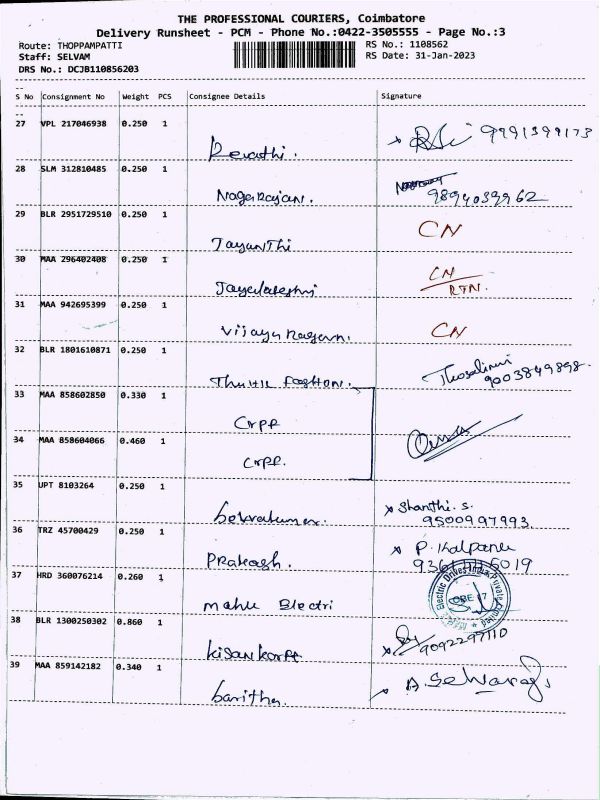 THE PROFESSIONAL COURIERS, Coimbatore
Delivery Runsheet - PCM - Phone No.:0422-3505555 - Page No.:3
Route: THOPPAMPATTI RS No.: 1108562
Staff: SELVAM RS Date: 31-Jan-2023
DRS No.: DCJB110856203
S No Consignment No Weight PCS Consignee Details Signature
27 VPL 217046938 0.250 1
Revathi. 9991399173
28 SLM 312810485 0.250 1
Nagarajan. 9894039962
29 BLR 2951729510 0.250 1 CN
Jayanthi
30 MAA 296402408 0.250 1 CN
RTN.
31 MAA 942695399 0.250 1 CN
Vijaya
32 BLR 1801610871 0.250 1
Fashion. 9003849898.
33 MAA 858602850 0.330 1
CRPF
34 MAA 858604066 0.460 1
CRPF.
35 UPT 8103264 0.250 1 Shanthi. S.
9500997993
36 TRZ 45700429 0.250 1 P. Kalpana
Prakash.
37 HRD 360076214 0.260 1 Electric Drives India Private Limited
Electri
38 BLR 1300250302 0.860 1
9092297110
39 MAA 859142182 0.340 1 A. Selvaraj